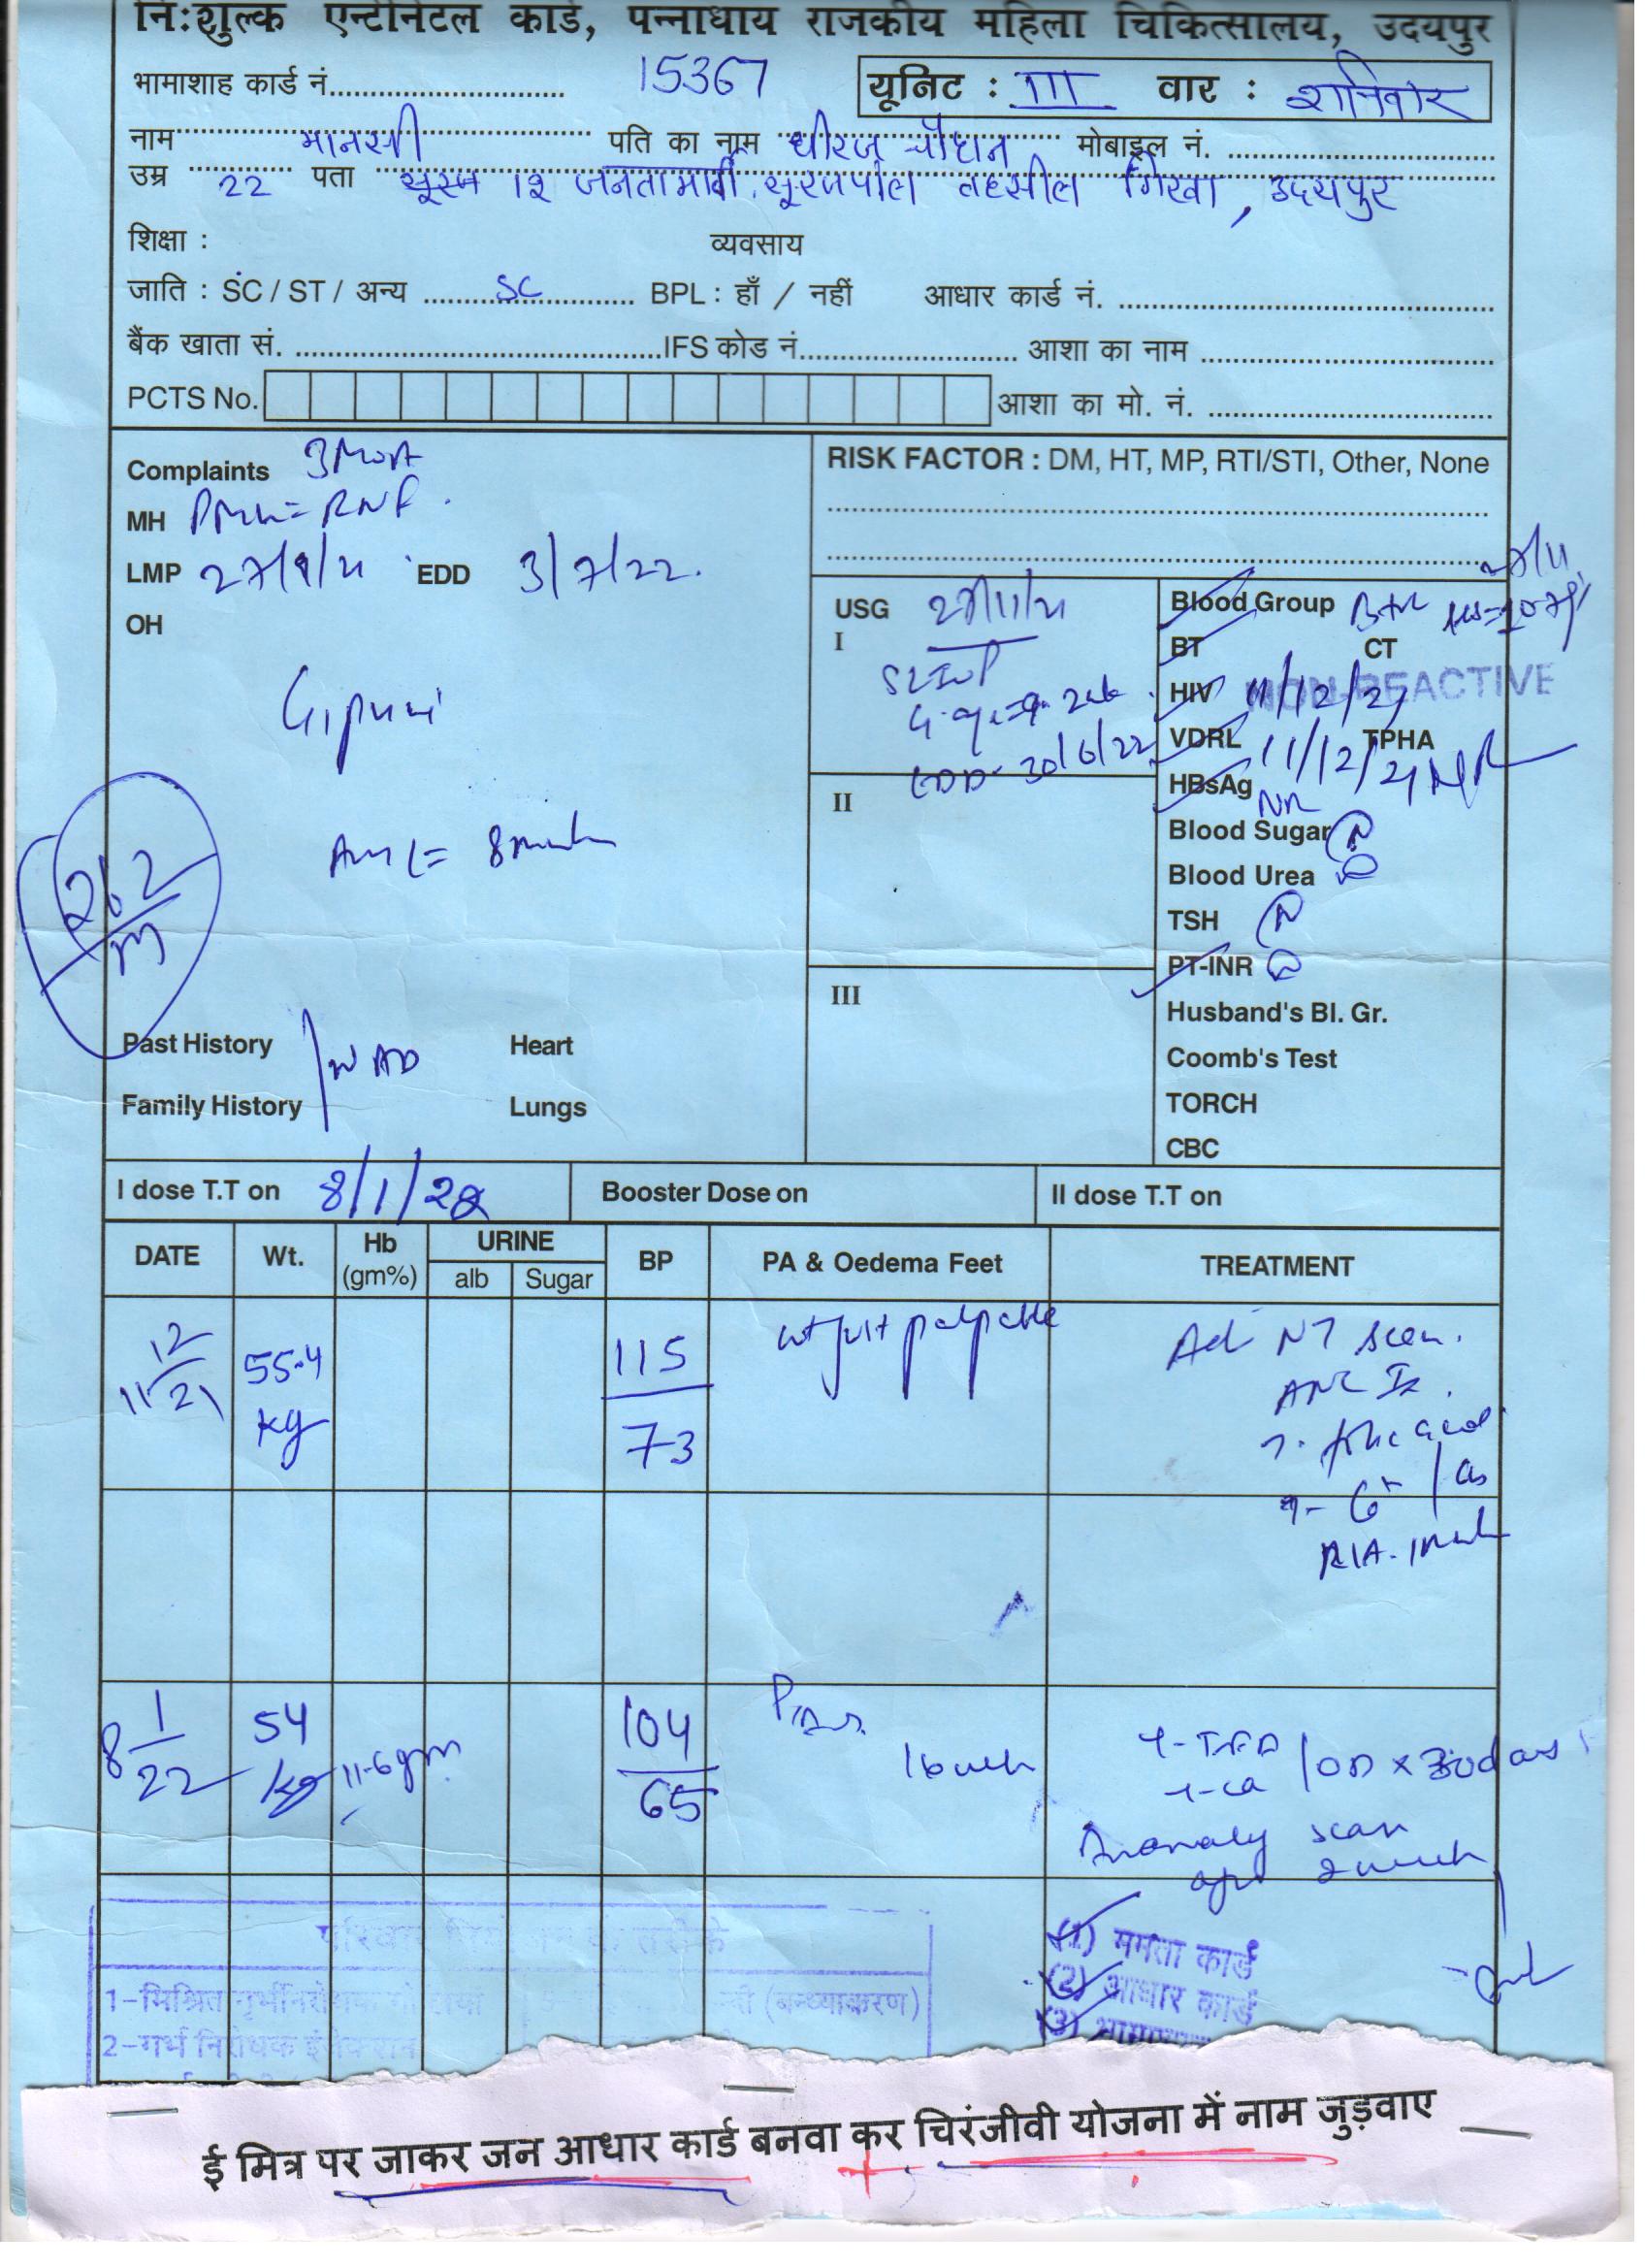 नि:शुल्क एन्टीनेटल कार्ड, पन्नाधाय राजकीय महिला चिकित्सालय, उदयपुर
भामाशाह कार्ड नं. 15367 यूनिट : III वार : शनिवार
नाम मानसी पति का नाम धीरज चौहान मोबाइल नं.
उम्र 22 पता सूरजपोल तहसील गिरवा, उदयपुर
शिक्षा : व्यवसाय
जाति : SC / ST / अन्य SC BPL : हाँ / नहीं आधार कार्ड नं.
बैंक खाता सं. IFS कोड नं. आशा का नाम
PCTS No. आशा का मो. नं.
Complaints
RISK FACTOR : DM, HT, MP, RTI/STI, Other, None
MH
LMP 27/9/21 EDD 3/7/22.
OH
USG 27/11/21
I
SLIUP
EDD- 30/6/22
II
III
Blood Group B+ve
BT CT
HIV NON-REACTIVE 11/12/21
VDRL 11/12/21 NR TPHA
HBsAg NR
Blood Sugar N
Blood Urea
TSH N
PT-INR
Husband's Bl. Gr.
Coomb's Test
TORCH
CBC
G1 primi
262/m
Past History NAD Heart
Family History Lungs
I dose T.T on 8/1/22 Booster Dose on II dose T.T on
DATE Wt. Hb (gm%) URINE alb Sugar BP PA & Oedema Feet TREATMENT
11/12/21 55.4 kg 115/73 ut just palpable Ad NT scan.
ANC Ix.
T. folic acid
8/1/22 54 kg 11.6gm 104/65 16 week T-IFA
T-ca / OD x 30 days
Anomaly scan
2 week
(1) ममता कार्ड
(2) आधार कार्ड
(3)
1-मिश्रित (बन्ध्याकरण)
2-गर्भ निरोधक
ई मित्र पर जाकर जन आधार कार्ड बनवा कर चिरंजीवी योजना में नाम जुड़वाए